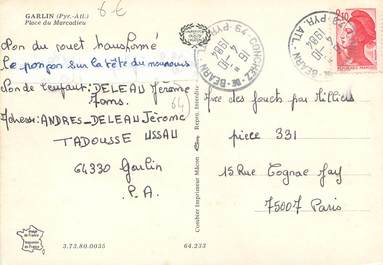 GARLIN (Pyr.-Atl.)
Place du Marcadieu
6 €
Nom du jouet transformé
le pompon sur la tête du nounours
Nom de l'enfant: DELEAU Jérôme
7 ans.
64
Adresse: ANDRES-DELEAU Jérôme
TADOUSSE USSAU
64330 Garlin
P.A.
3.73.80.0035
64.233
Combier Imprimeur Mâcon
Repro. Interdite
64 - PYR. ATL.
15 4
1984
BEARN
2,10
Jeu des jouets par Milliers
pièce 331
15 Rue Cognac Jay
75007 Paris